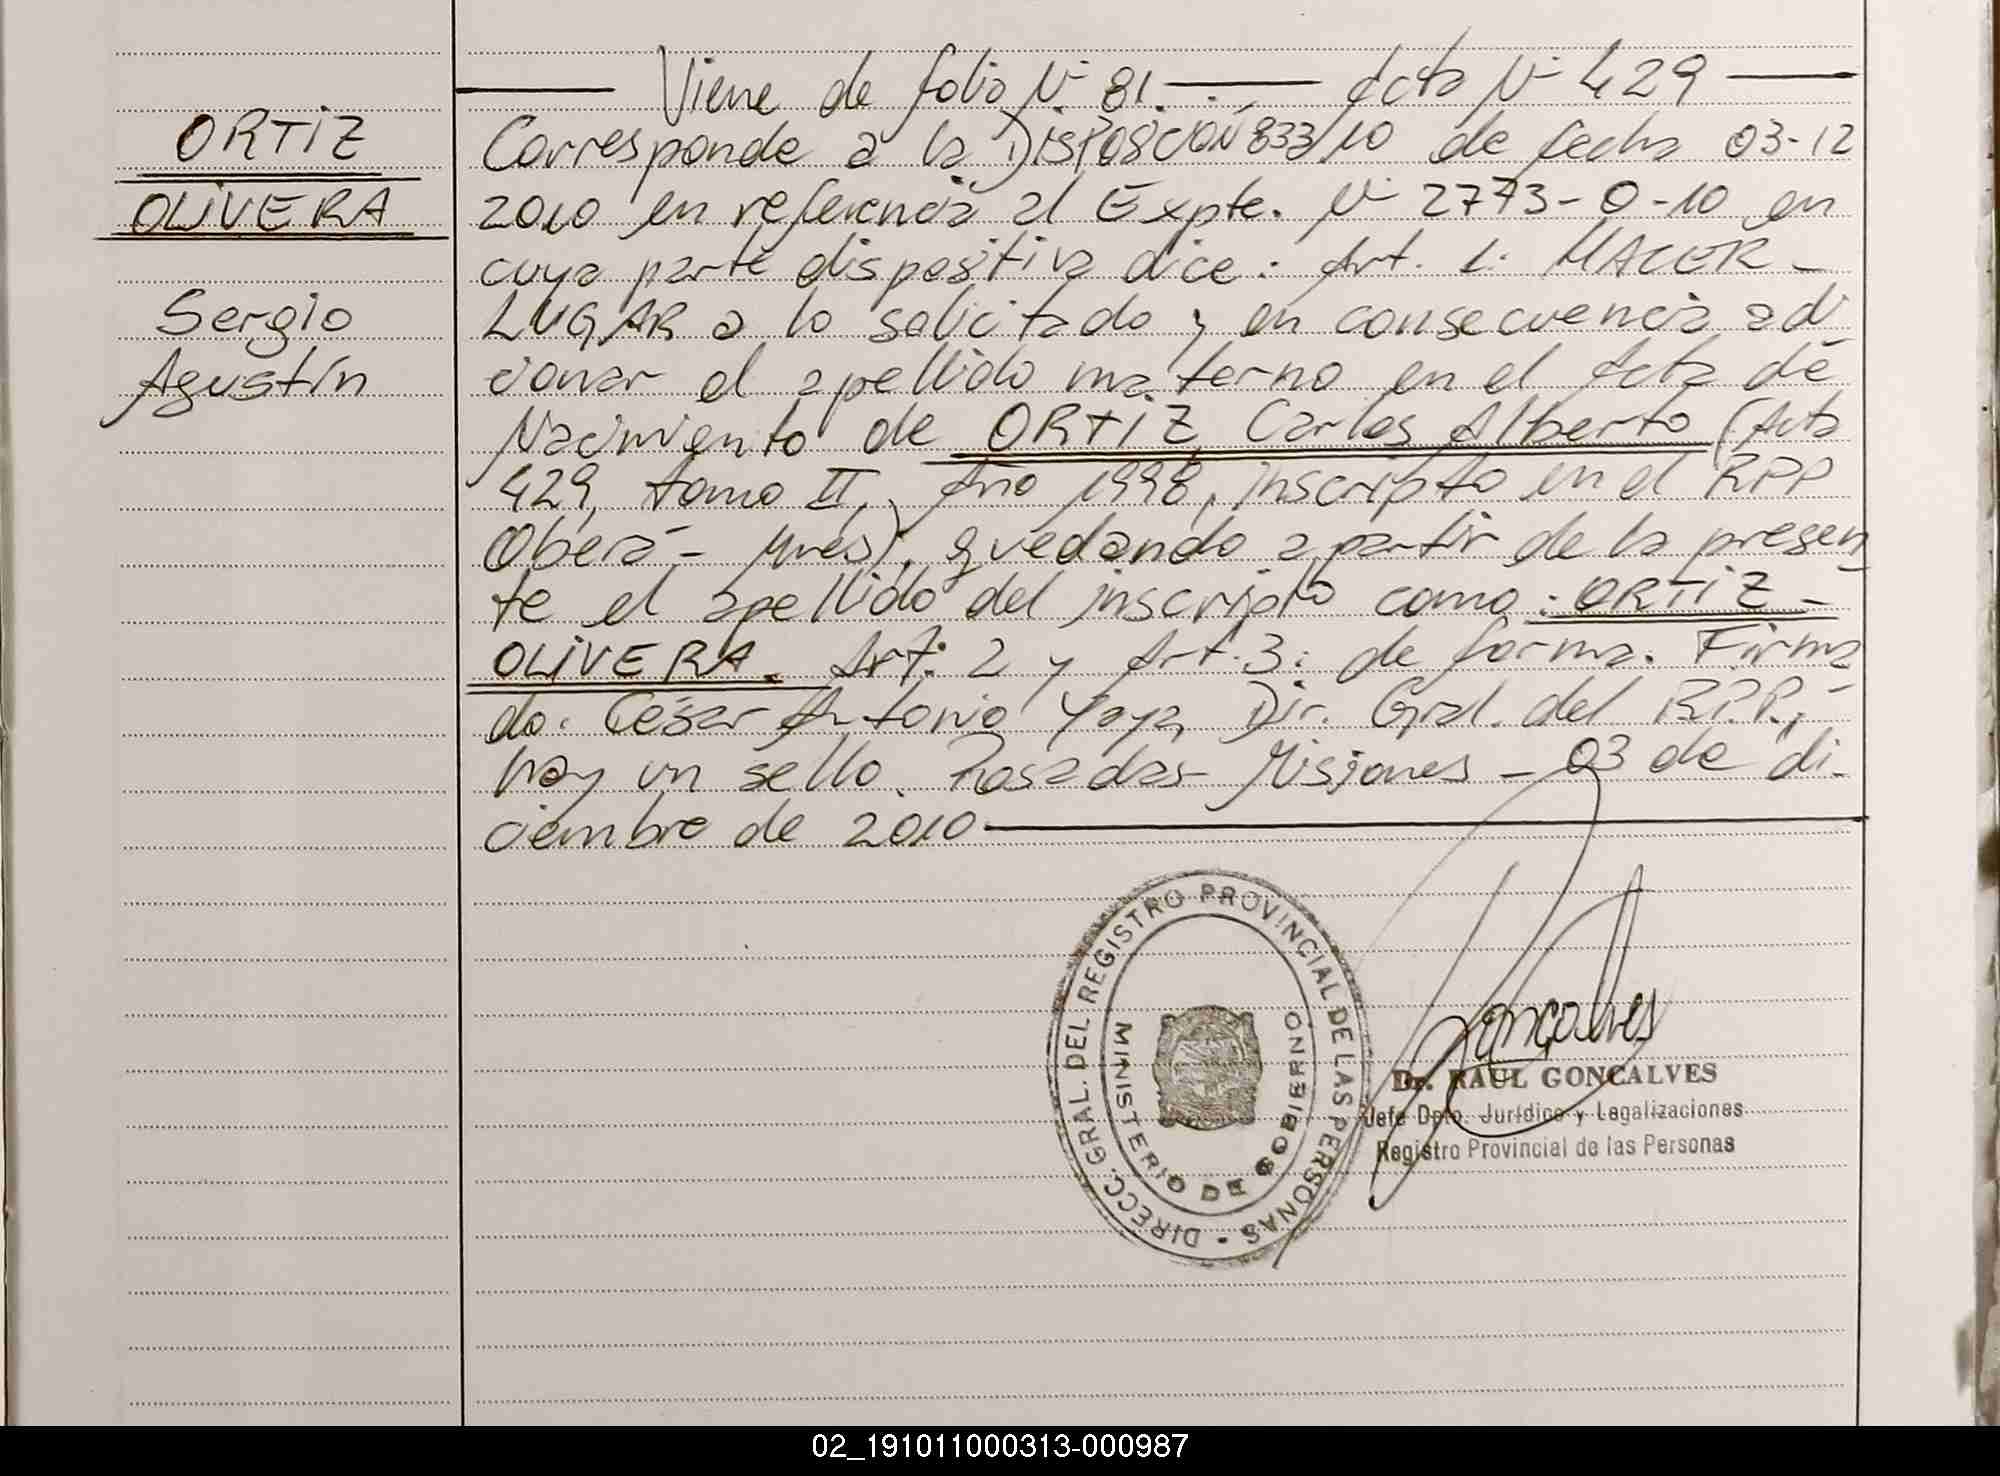 Viene de folio Nº 81. Acta Nº 429
ORTIZ
OLIVERA
Sergio
Agustín
Corresponde a la DISPOSICIÓN 833/10 de fecha 03-12
2010 en referencia al Expte. Nº 2773-O-10 en
cuya parte dispositiva dice: Art. 1: HACER
LUGAR a lo solicitado y en consecuencia adi
cionar el apellido materno en el Acta de
Nacimiento de ORTIZ, Carlos Alberto (Acta
429, tomo II, Año 1998, inscripto en el RPP
Oberá - Mnes), quedando a partir de la presen
te el apellido del inscripto como: ORTIZ -
OLIVERA. Art: 2 y Art. 3: de forma. Firma
do. César Antonio Yaya, Dir. Gral. del R.P.P.,
hay un sello. Posadas Misiones - 03 de di-
ciembre de 2010
DIRECC. GRAL. DEL REGISTRO PROVINCIAL DE LAS PERSONAS -
MINISTERIO DE GOBIERNO
Gonçalves
Dr. RAUL GONCALVES
Jefe Dpto. Jurídico y Legalizaciones
Registro Provincial de las Personas
02_191011000313-000987